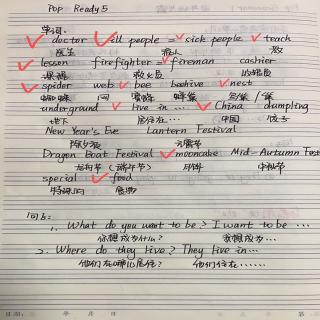 Pop Ready 5
单词:
doctor ill people = sick people teach
医生 病人 教
lesson firefighter = fireman cashier
课程 救火员 收银员
spider web bee beehive nest
蜘蛛 网 蜜蜂 蜂巢 鸟巢/窝
underground live in... China dumpling
地下 居住在... 中国 饺子
New Year's Eve Lantern Festival
除夕夜 元宵节
Dragon Boat Festival mooncake Mid-Autumn Fest
龙舟节 (端午节) 月饼 中秋节
special food
特殊的 食物
句型:
1. What do you want to be? I want to be ...
你想成为什么? 我想成为...
2. Where do they live? They live in...
他们在哪儿居住? 他们住在......
日期: 年 月 日